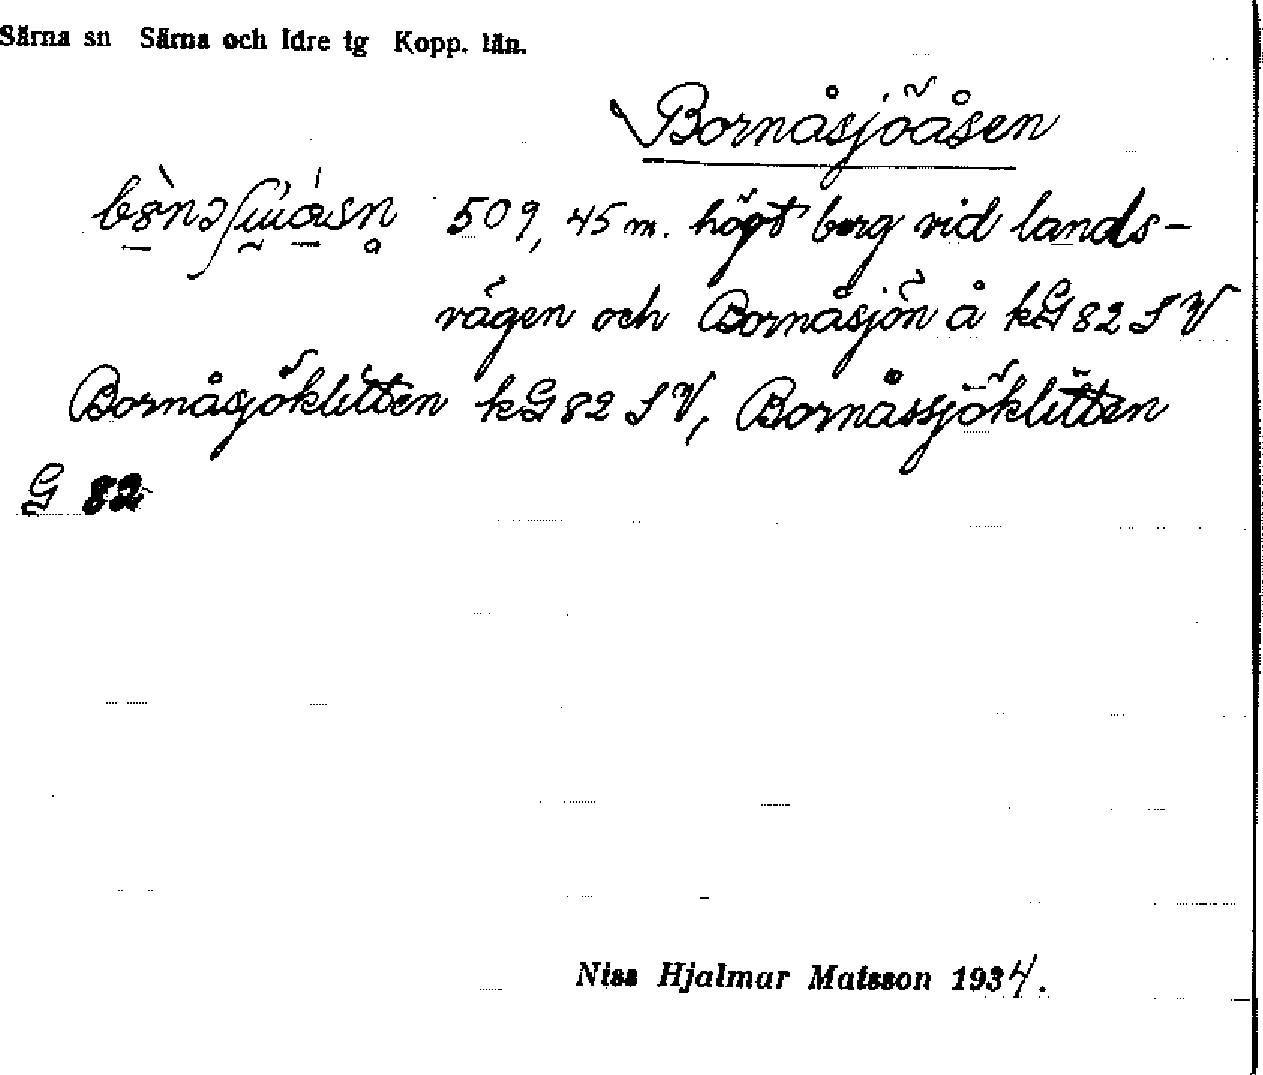 Särna sn Särna och Idre tg Kopp. län.
Bornåsjöåsen
509,45 m. högt berg vid lands-
vägen och Bornåsjön å kG 82 S V
Bornåsjöklitten kG 82 S V, Bornåssjöklitten
G 82
Niss Hjalmar Matsson 1934.